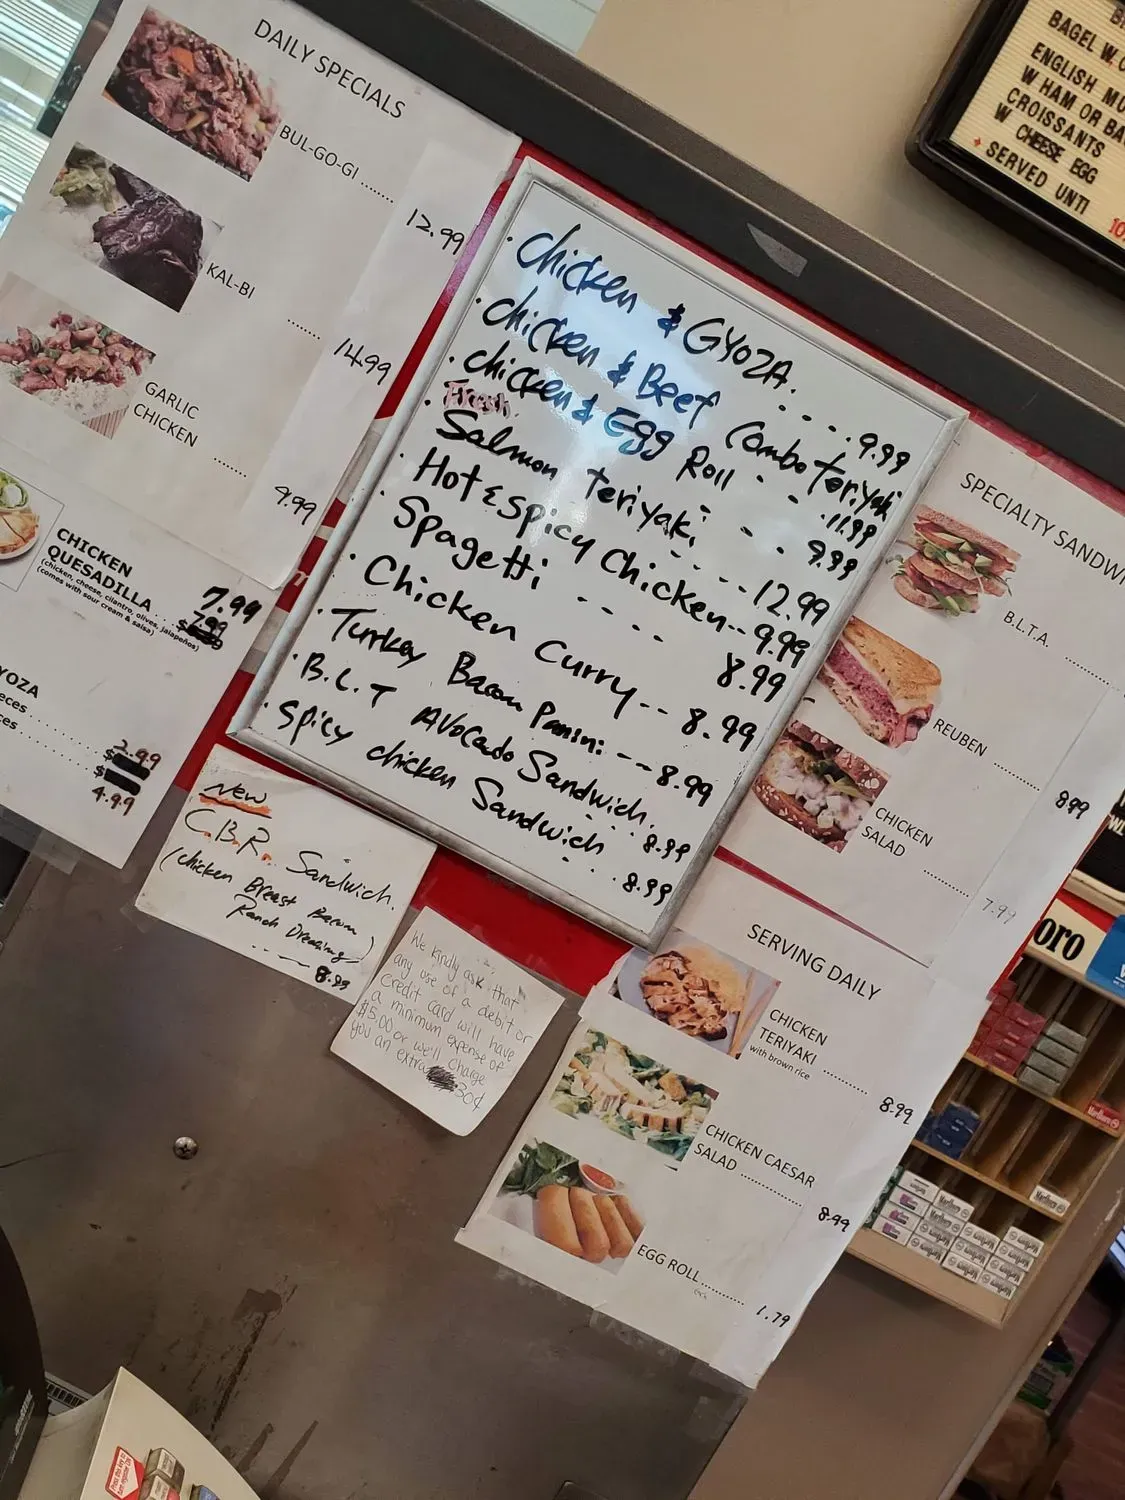 DAILY SPECIALS
BUL-GO-GI ......
12.99
KAL-BI
......
14.99
GARLIC
CHICKEN
......
9.99
CHICKEN
QUESADILLA ....
7.99
(chicken, cheese, cilantro, olives, jalapeños)
(comes with sour cream & salsa)
YOZA
eces
$2.99
ces
$
4.99
· Chicken & GYOZA. - - - . 9.99
· Chicken & Beef Combo Teriyaki
11.99
· Chicken & Egg Roll - - - . 9.99
Fresh
· Salmon Teriyaki - - - - 12.99
· Hot & Spicy Chicken -- 9.99
· Spagetti - - - - 8.99
· Chicken Curry -- 8.99
· Turkey Bacon Panini -- 8.99
· B.L.T AVocado Sandwich.
8.99
· Spicy chicken Sandwich
8.99
NEW
C.B.R. Sandwich.
(Chicken Breast Bacon
Ranch Dressing)
- - - - 8.99
We kindly ask that
any use of a debit or
credit card will have
a minimum expense of
$5.00 or we'll charge
you an extra 30¢
BAGEL W.
ENGLISH MU
W HAM OR BA
CROISSANTS
W CHEESE EGG
SERVED UNTI
10
SPECIALTY SANDW
B.L.T.A. ......
REUBEN
8.99
CHICKEN
SALAD
7.99
SERVING DAILY
CHICKEN
TERIYAKI
with brown rice
8.99
CHICKEN CAESAR
SALAD
8.99
EGG ROLL
1.79
oro
Marlboro